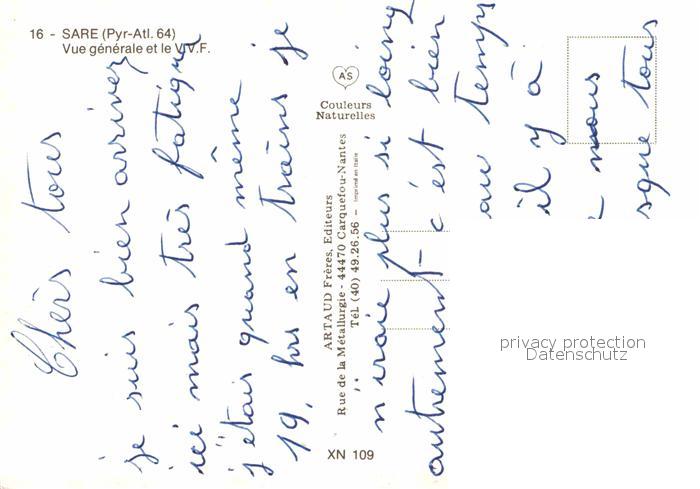 16 - SARE (Pyr-Atl. 64)
Vue générale et le V.V.F.
AS
Couleurs
Naturelles
ARTAUD Frères, Editeurs
Rue de la Métallurgie - 44470 Carquefou-Nantes
Tél. (40) 49.26.56 - Imprimé en Italie
XN 109
Chèrs tous
je suis bien arriver
ici mais très fatigué
j'étais quand même
19 hrs en trains je
n'iraie plus si loing
autrement c'est bien
au temps
il y à
nous
sque tous
privacy protection
Datenschutz